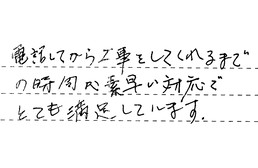 電話してから工事をしてくれるまで
の時間も素早い対応で
とても満足しています。